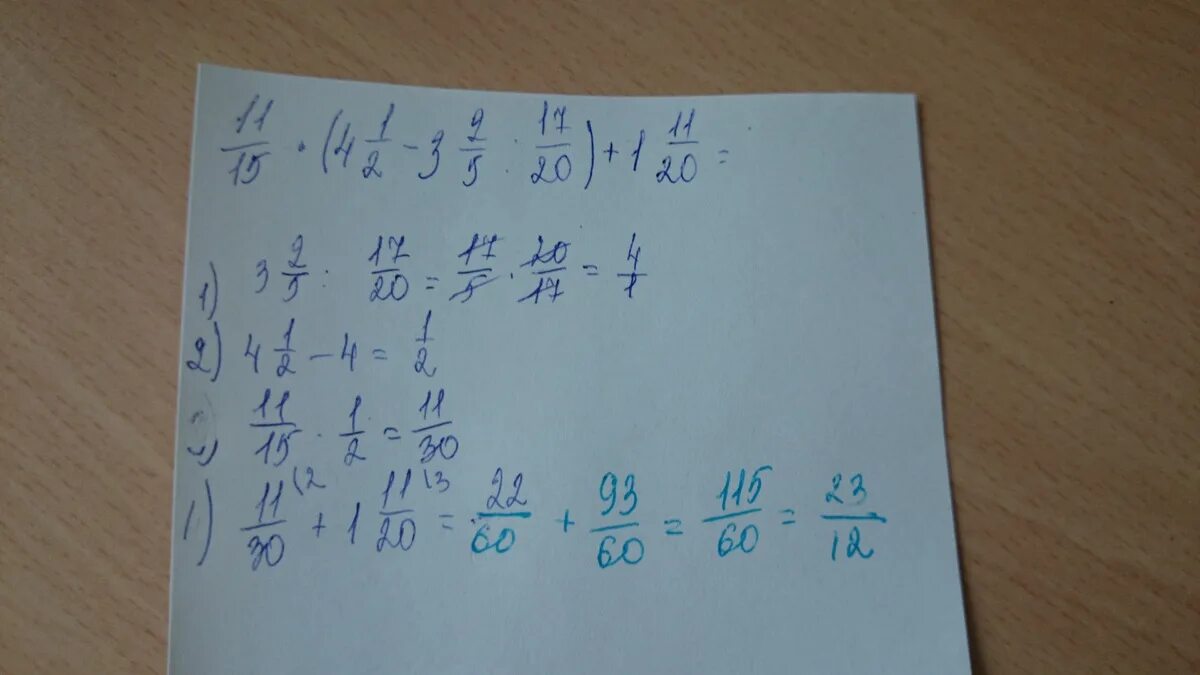 11/15 · (4 1/2 - 3 2/5 : 17/20) + 1 11/20 =
1) 3 2/5 : 17/20 = 17/5 · 20/17 = 4/1
2) 4 1/2 - 4 = 1/2
11/15 · 1/2 = 11/30
11/30 \2 + 1 11/20 \3 = 22/60 + 93/60 = 115/60 = 23/12